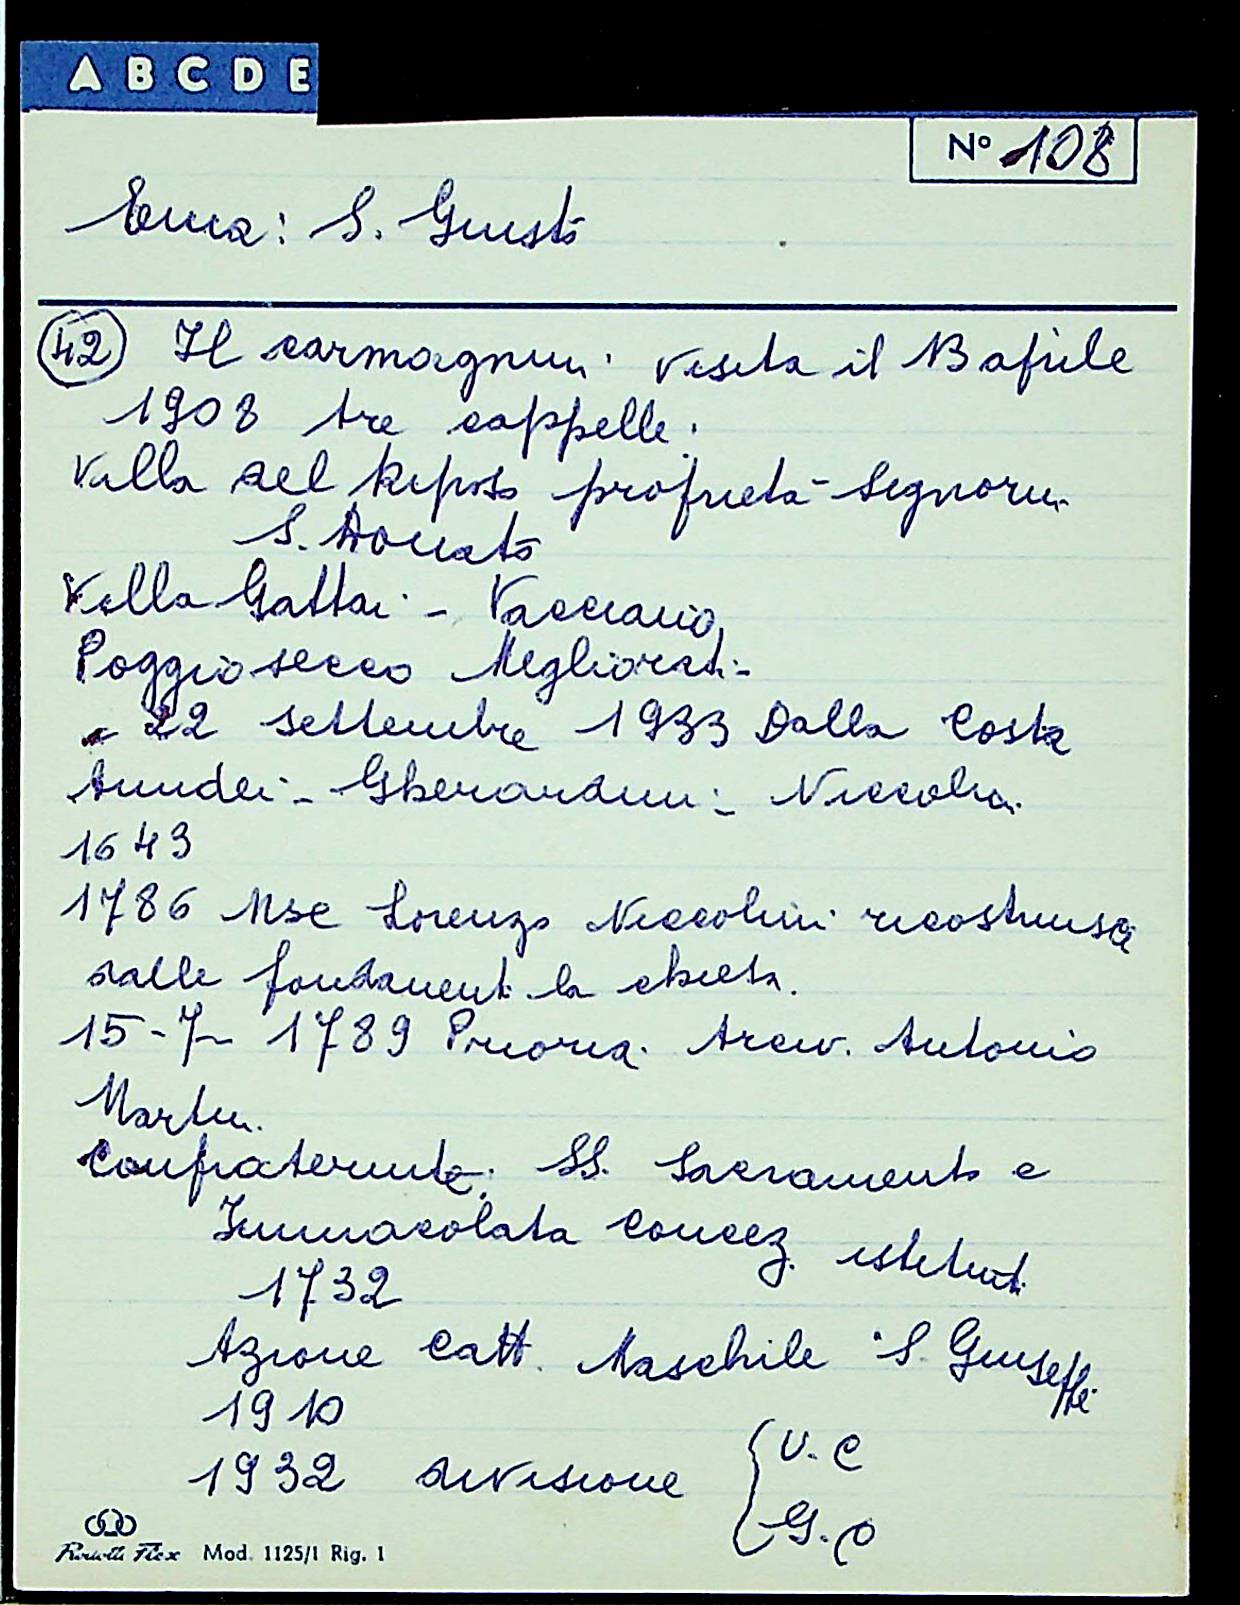 A B C D E
N° 108
Ema: S. Giusto
42 Il carmagnini visita il 13 aprile
1908 tre cappelle:
Villa del Riposo proprietà Signorin
S. Donato
Villa Gattai - Vacciano
Poggiosecco Megliorati -
22 settembre 1933 Dalla Costa
- Gherardini - Niccolin
1643
1786 Msc Lorenzo Niccolini ricostruisce
dalle fondamenti la chiesa.
15-7- 1789 Prioria. Arciv. Antonio
Martin.
Confraternite: SS. Sacramento e
Immacolata Concez. istituit.
1732
Azione Catt. Maschile S. Giuseppe
1910
1932 divisione { U. C
G. C
Mod. 1125/1 Rig. 1